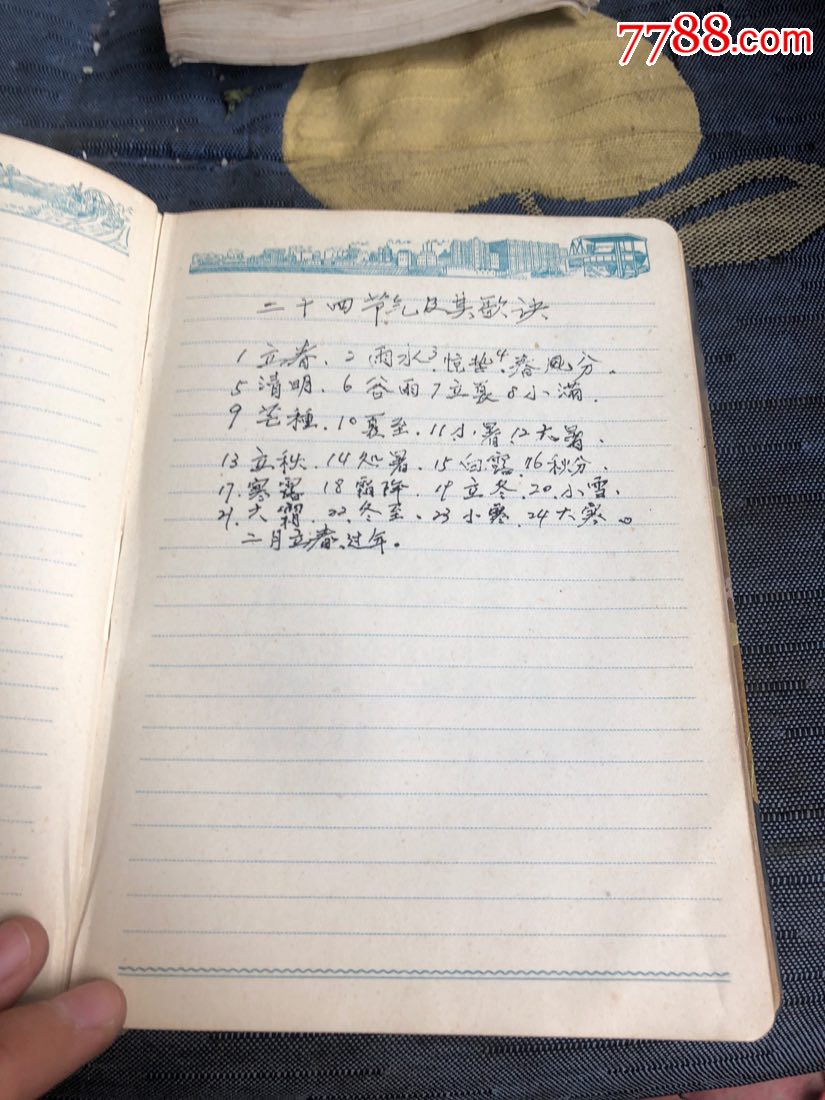 7788.com
二十四节气及其歌诀
1立春、2雨水3惊蛰、4春风分.
5清明、6谷雨7立夏8小满.
9芒種、10夏至、11小暑12大暑、
13立秋、14处暑、15白露、16秋分.
17、寒露、18霜降、19立冬、20、小雪、
21、大霜、22、冬至、23小寒、24大寒。
二月立春、过年。